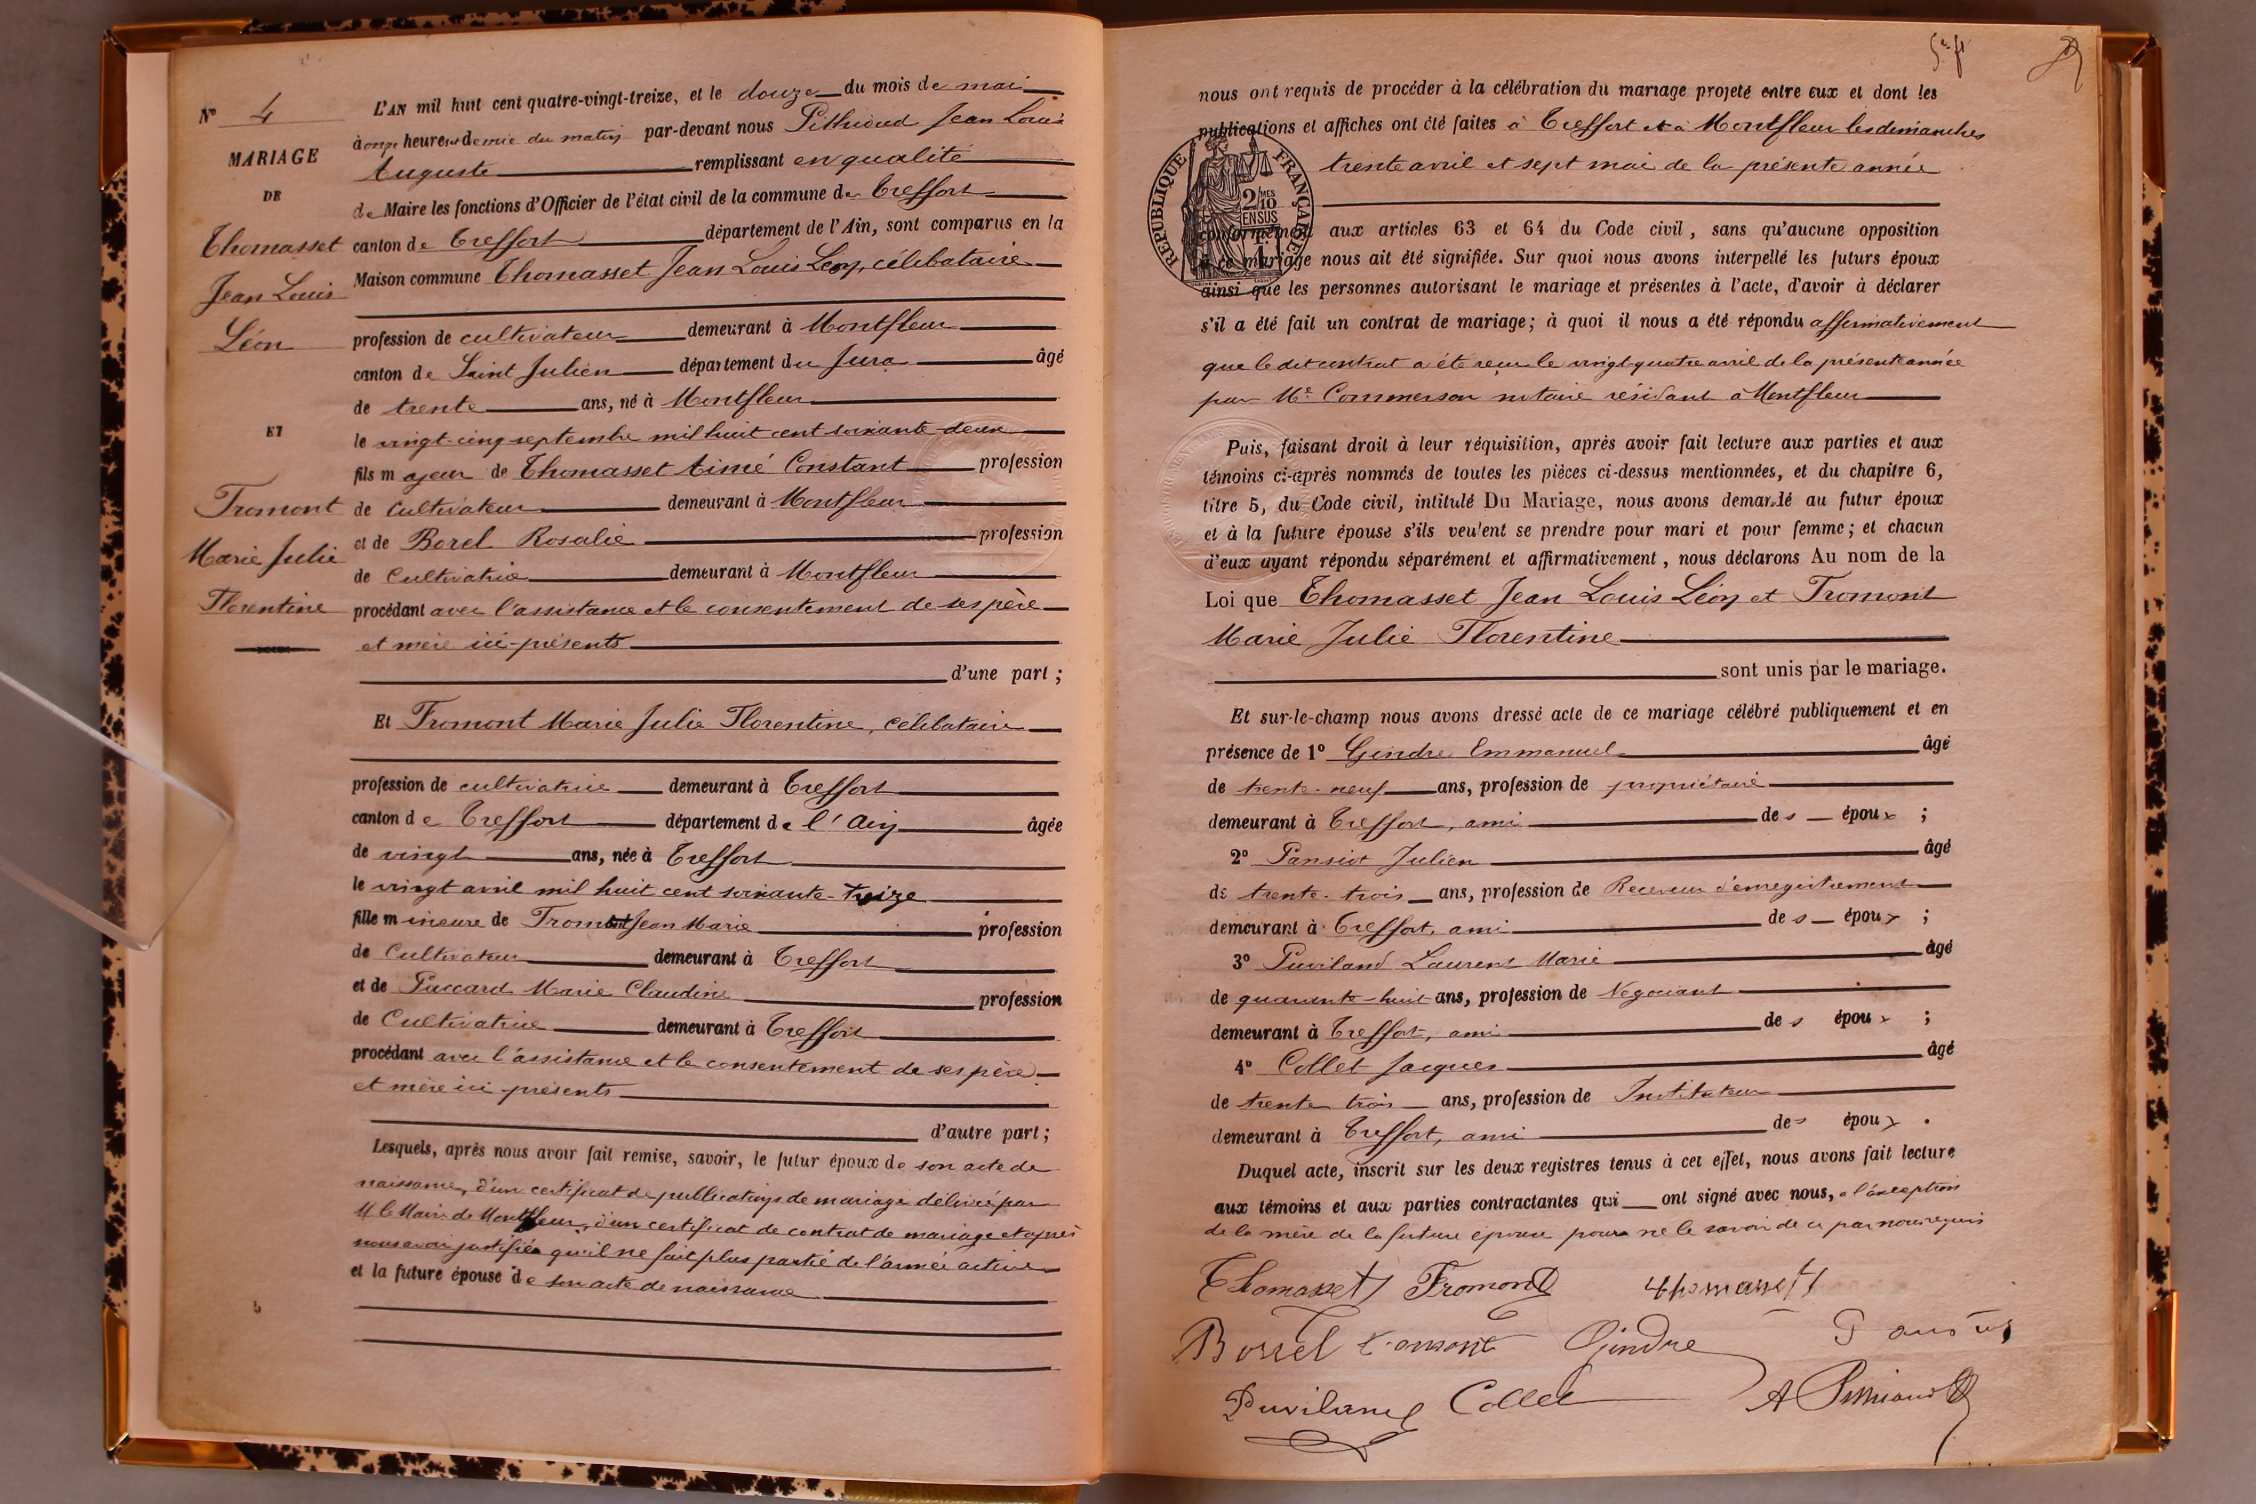 N° 4
MARIAGE
DE
Thomasset
Jean Louis
Léon
ET
Fromont
Marie Julie
Florentine
L'AN mil huit cent quatre-vingt-treize, et le douze du mois de mai
à onze heures et demie du matin par-devant nous Pithioud Jean Louis
Auguste remplissant en qualité
de Maire les fonctions d'Officier de l'état civil de la commune de Treffort
canton de Treffort département de l'Ain, sont comparus en la
Maison commune Thomasset Jean Louis Léon, célibataire
profession de cultivateur demeurant à Montfleur
canton de Saint Julien département du Jura âgé
de trente ans, né à Montfleur
le vingt-cinq septembre mil huit cent soixante-deux
fils majeur de Thomasset Aimé Constant profession
de cultivateur demeurant à Montfleur
et de Borel Rosalie profession
de Cultivatrice demeurant à Montfleur
procédant avec l'assistance et le consentement de ses père
et mère ici-présents
d'une part ;
Et Fromont Marie Julie Florentine, célibataire
profession de cultivatrice demeurant à Treffort
canton de Treffort département de l'Ain âgée
de vingt ans, née à Treffort
le vingt avril mil huit cent soixante-treize
fille mineure de Fromont Jean Marie profession
de Cultivateur demeurant à Treffort
et de Puccard Marie Claudine profession
de Cultivatrice demeurant à Treffort
procédant avec l'assistance et le consentement de ses père
et mère ici-présents
d'autre part ;
Lesquels, après nous avoir fait remise, savoir, le futur époux de son acte de
naissance, d'un certificat de publications de mariage délivré par
M le Maire de Montfleur, d'un certificat de contrat de mariage et après
nous avoir justifié qu'il ne fait plus partie de l'armée active
et la future épouse de son acte de naissance
nous ont requis de procéder à la célébration du mariage projeté entre eux et dont les
publications et affiches ont été faites à Treffort et à Montfleur les dimanches
trente avril et sept mai de la présente année
RÉPUBLIQUE FRANÇAISE
2/10 MES
EN SUS
conformément aux articles 63 et 64 du Code civil, sans qu'aucune opposition
à ce mariage nous ait été signifiée. Sur quoi nous avons interpellé les futurs époux
ainsi que les personnes autorisant le mariage et présentes à l'acte, d'avoir à déclarer
s'il a été fait un contrat de mariage; à quoi il nous a été répondu affirmativement
que le dit contrat a été reçu le vingt-quatre avril de la présente année
par Me Commerson notaire résidant à Montfleur
Puis, faisant droit à leur réquisition, après avoir fait lecture aux parties et aux
témoins ci-après nommés de toutes les pièces ci-dessus mentionnées, et du chapitre 6,
titre 5, du Code civil, intitulé Du Mariage, nous avons demandé au futur époux
et à la future épouse s'ils veulent se prendre pour mari et pour femme; et chacun
d'eux ayant répondu séparément et affirmativement, nous déclarons Au nom de la
Loi que Thomasset Jean Louis Léon et Fromont
Marie Julie Florentine
sont unis par le mariage.
Et sur-le-champ nous avons dressé acte de ce mariage célébré publiquement et en
présence de 1° Gindre Emmanuel âgé
de trente-neuf ans, profession de propriétaire
demeurant à Treffort, ami des époux ;
2° Pansiot Julien âgé
de trente-trois ans, profession de Receveur d'enregistrement
demeurant à Treffort, ami des époux ;
3° Puviland Laurent Marie âgé
de quarante-huit ans, profession de Négociant
demeurant à Treffort, ami des époux ;
4° Collet Jacques âgé
de trente trois ans, profession de Instituteur
demeurant à Treffort, ami des époux .
Duquel acte, inscrit sur les deux registres tenus à cet effet, nous avons fait lecture
aux témoins et aux parties contractantes qui ont signé avec nous, à l'exception
de la mère de la future épouse pour ne le savoir de ce par nous requis
Thomasset Fromont thomasset
Borrel Gindre
Puviland Collet